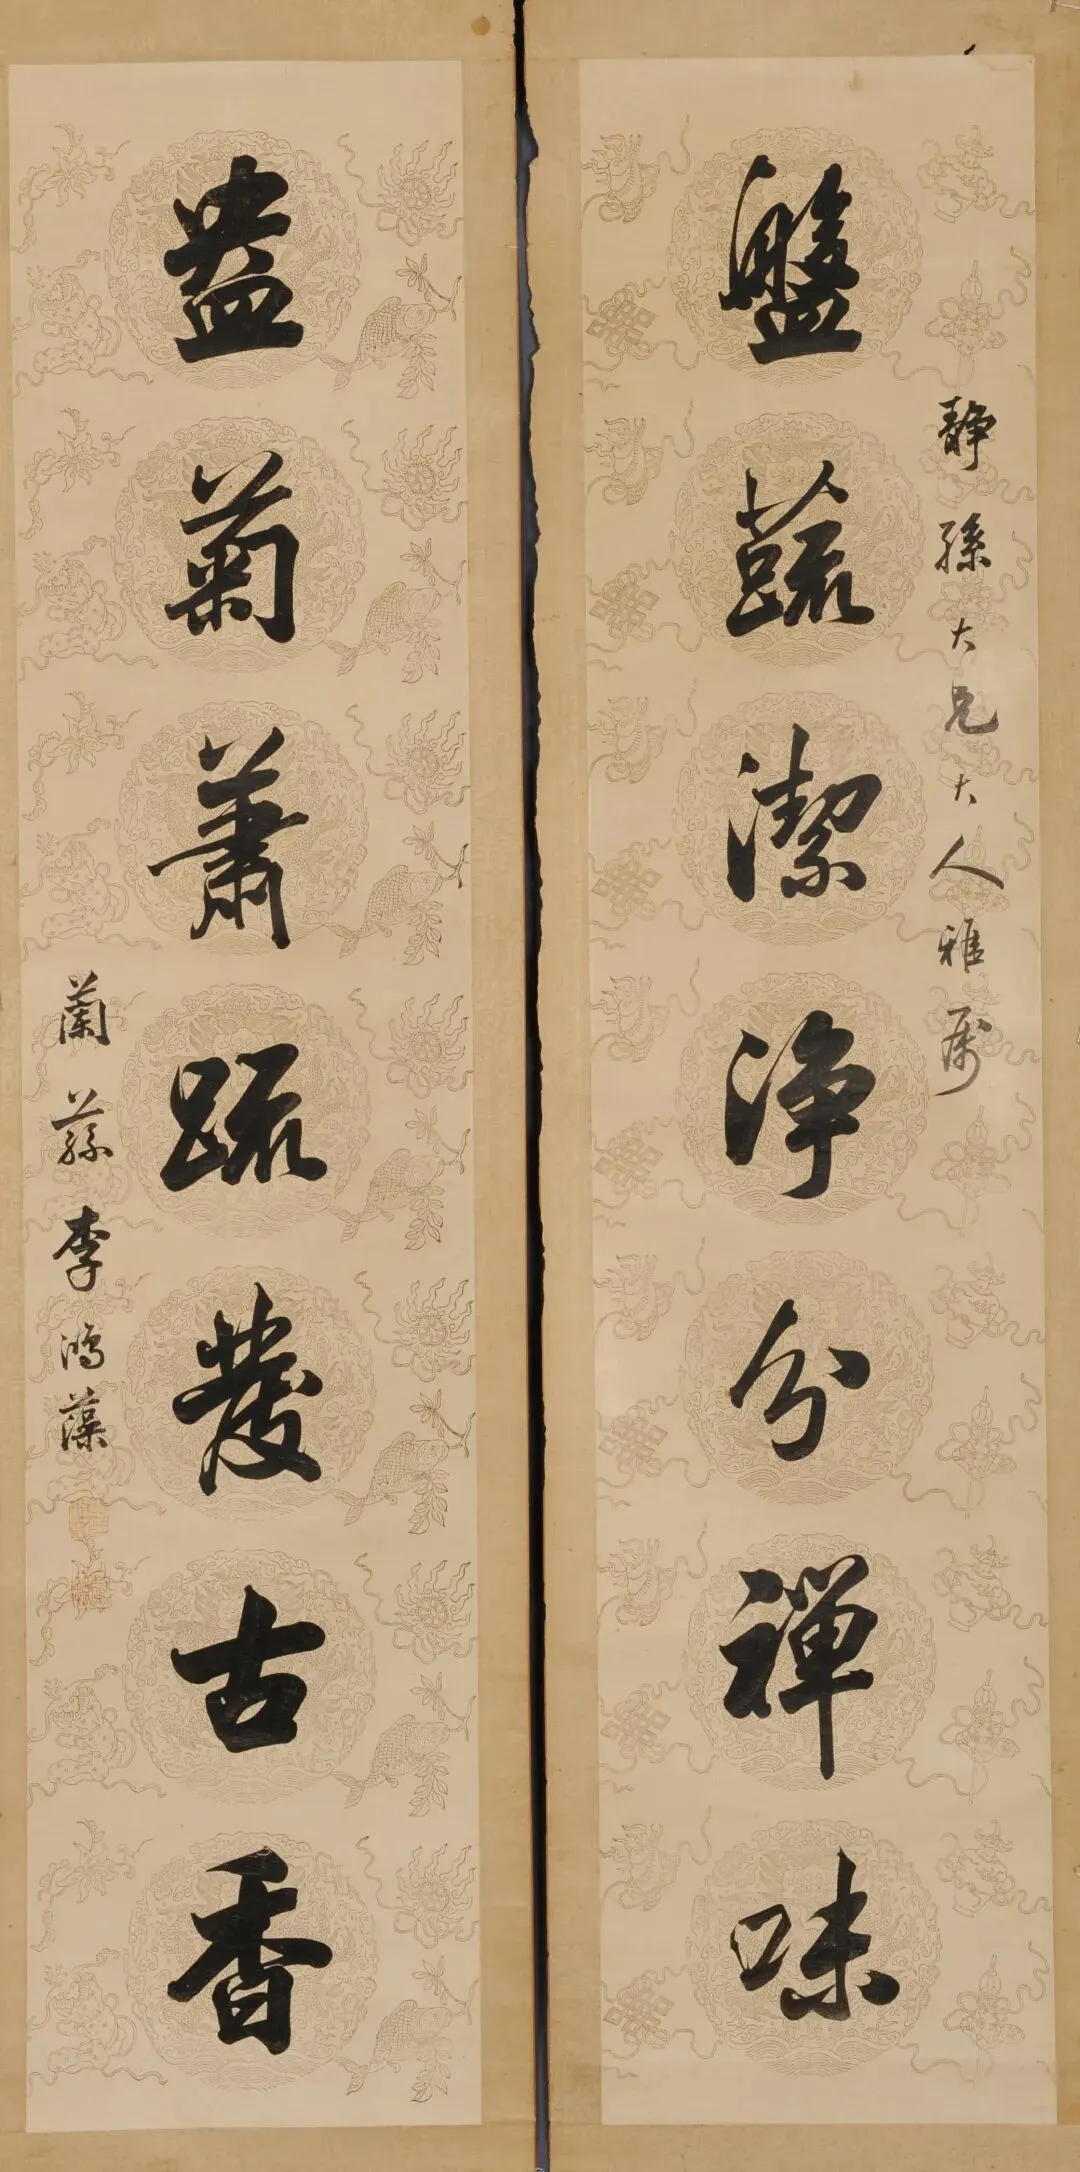 静孫大兄大人雅屬
盤蔬潔淨分禪味
盎菊蕭疏發古香
蘭蓀李鴻藻